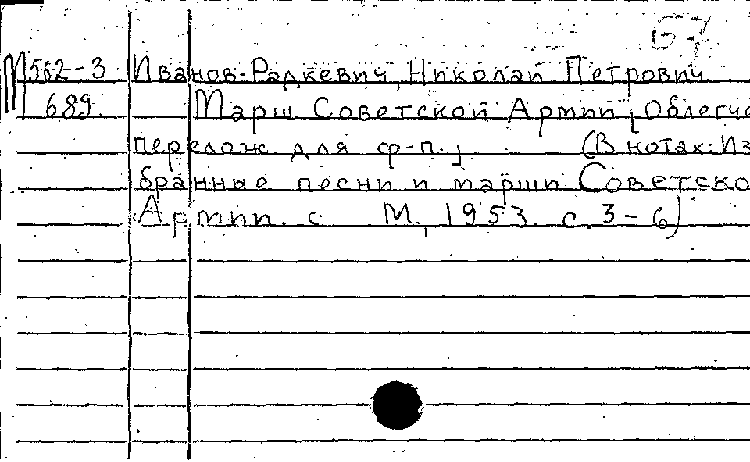 67
М562-3 Иванов-Радкевич, Николай Петрович
689. Марш Советской Армии [Облегч
перелож. для ф-п.] (В нотах: Из
бранные песни и марши Советско
Армии. с М., 1953. с. 3-6)